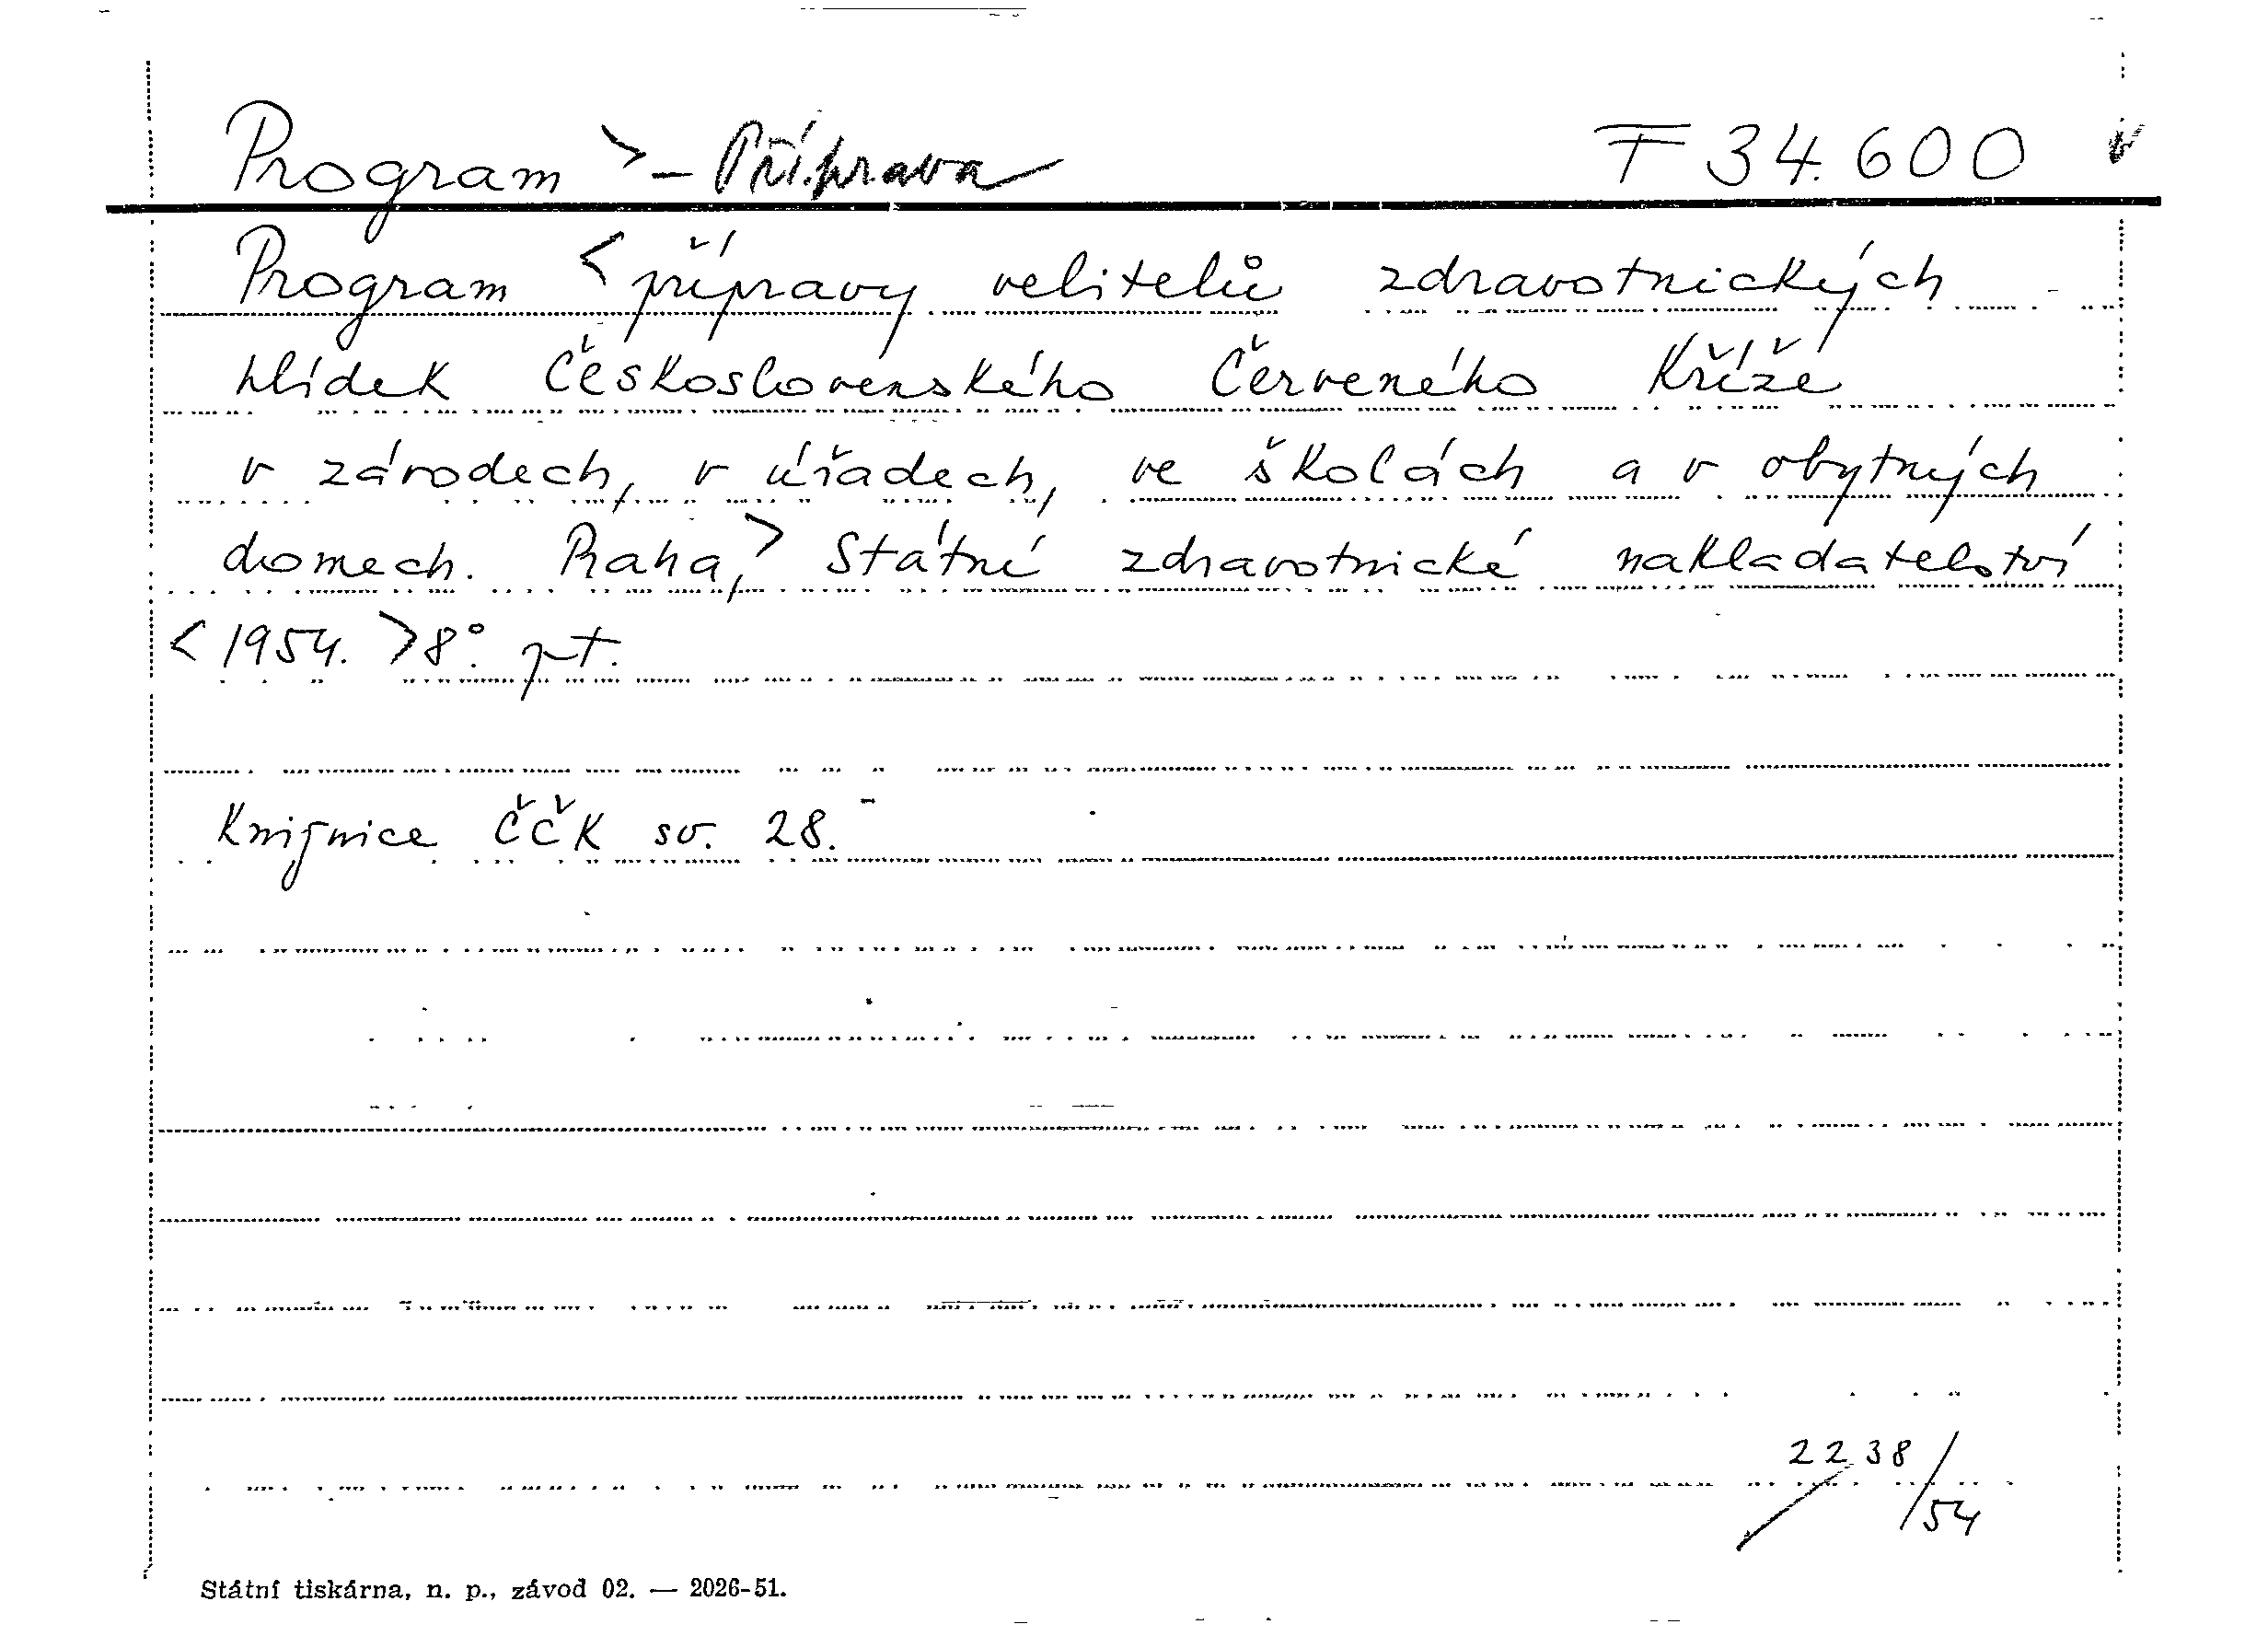 Program > - Příprava F 34.600
Program < přípravy velitelů zdravotnických
hlídek Československého Červeného Kříže
v závodech, v úřadech, ve školách a v obytných
domech. Praha, > Státní zdravotnické nakladatelství
< 1954. > 8°. pt.
Knižnice ČČK sv. 28.
2238/54
Státní tiskárna, n. p., závod 02. — 2026-51.